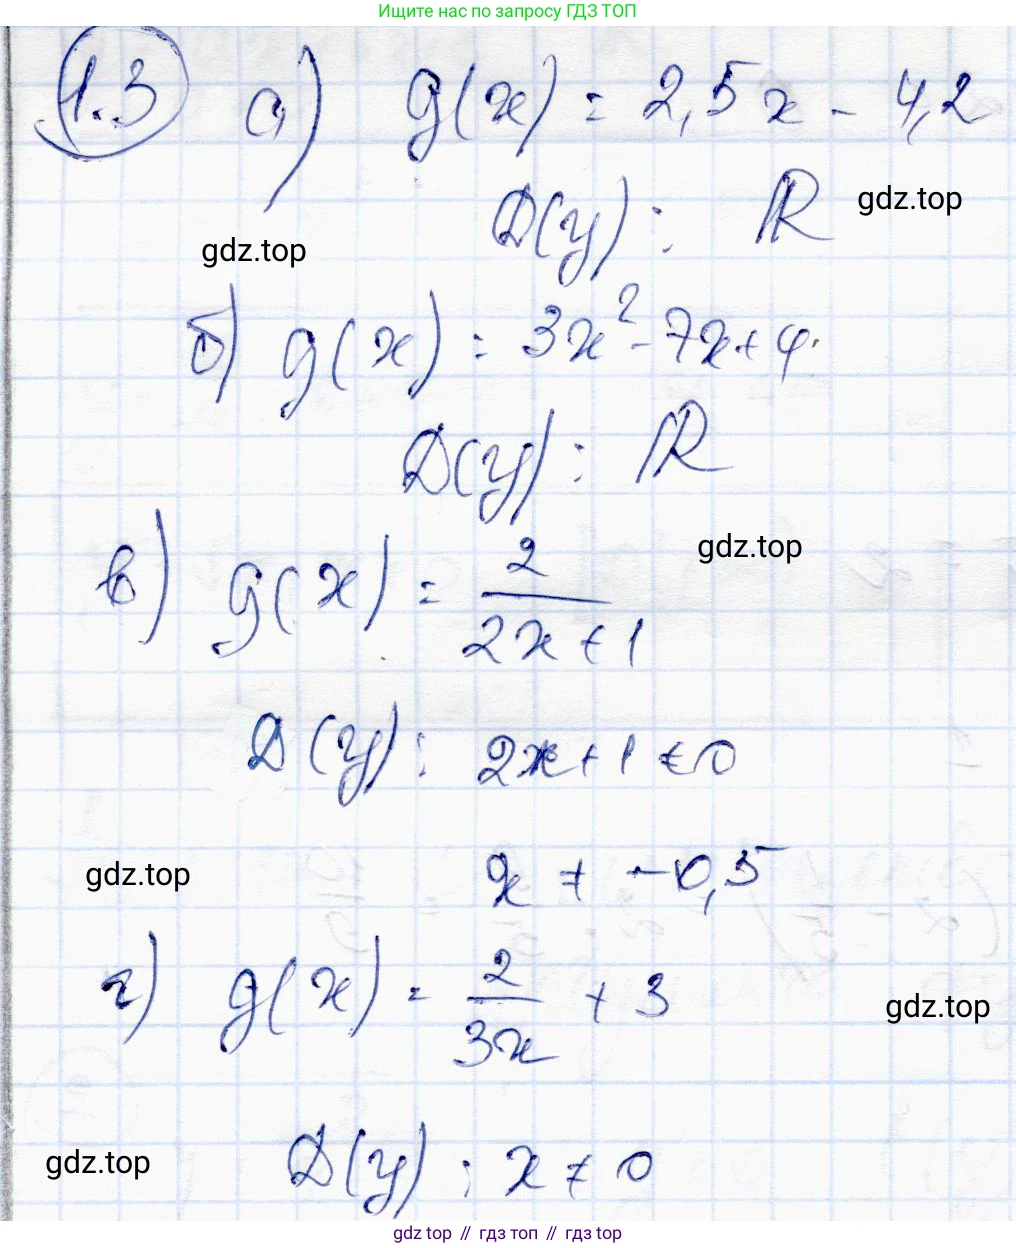 Ищите нас по запросу ГДЗ ТОП
1.3 а) g(x) = 2,5x - 4,2
D(y) : ℝ
gdz.top
gdz.top
б) g(x) = 3x² - 7x + 4.
D(y) : ℝ
gdz.top
в) g(x) = 2/(2x + 1)
D(y) : 2x + 1 ≠ 0
gdz.top
x ≠ -0,5
г) g(x) = 2/(3x) + 3
gdz.top
gdz.top
D(y) : x ≠ 0
gdz top // гдз топ // gdz top